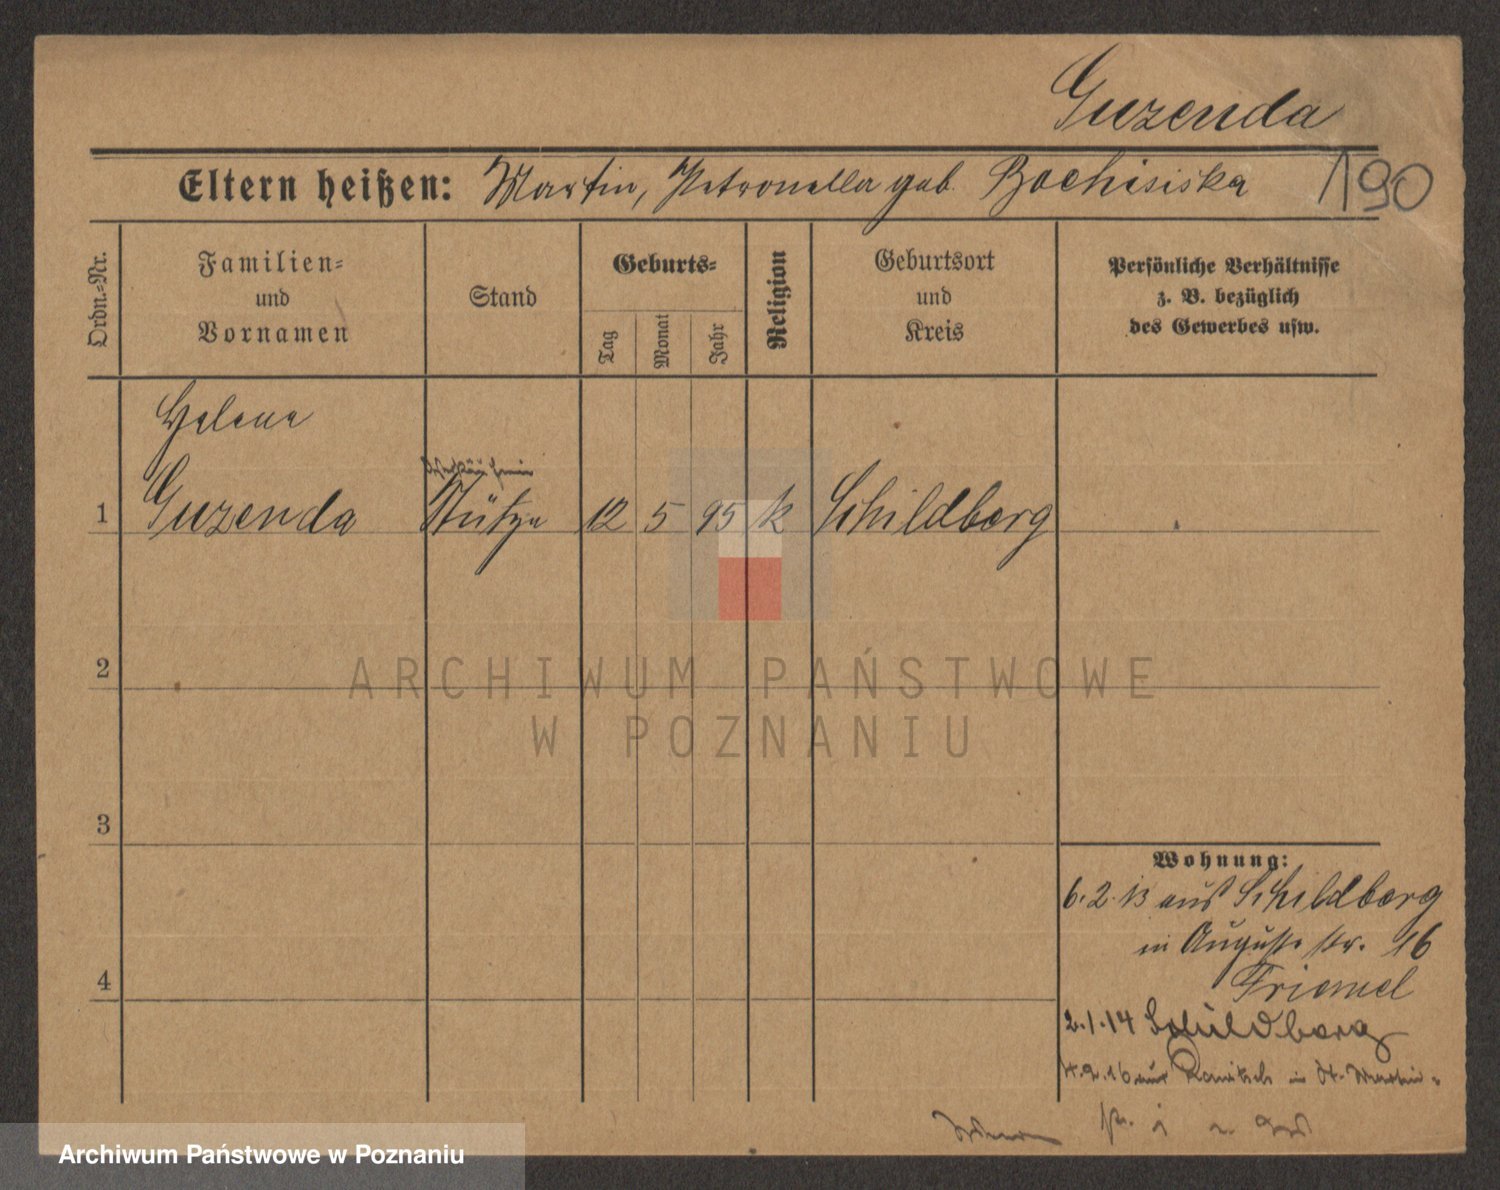 Guzenda
Eltern heißen: Martin, Petronella geb. Bochisiska
190
Ordn.-Nr.
Familien-
und
Vornamen
Stand
Geburts-
Tag
Monat
Jahr
Religion
Geburtsort
und
Kreis
Persönliche Verhältnisse
z. B. bezüglich
des Gewerbes usw.
Helene
1 Guzenda Stütze 12 5 95 k Schildberg
2
3
4
Wohnung:
6.2.13 aus Schildberg
in Auguste str. 16
Friemel
2.1.14 Schildberg
4.2.16 aus in St. Martin-
ARCHIWUM PAŃSTWOWE
W POZNANIU
Archiwum Państwowe w Poznaniu